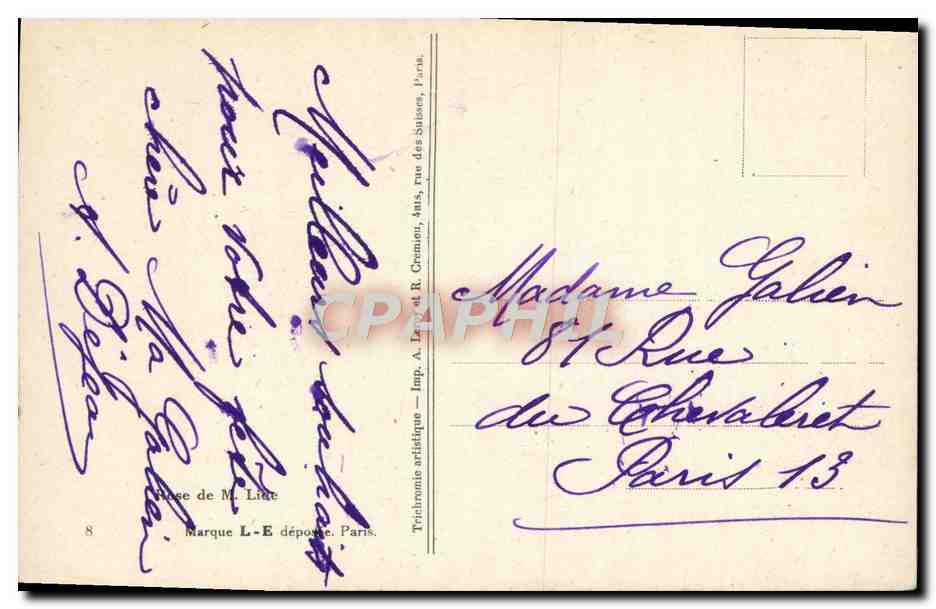 Meilleurs souhaits
pour votre fête
chère Ma Galien
A. Dejean
Rose de M. Lide
8
Marque L-E déposée. Paris.
Trichromie artistique — Imp. A. Leroy et R. Cremieu, 4bis, rue des Suisses, Paris.
Madame Galien
81 Rue
du Chevaleret
Paris 13
CPAPHIL